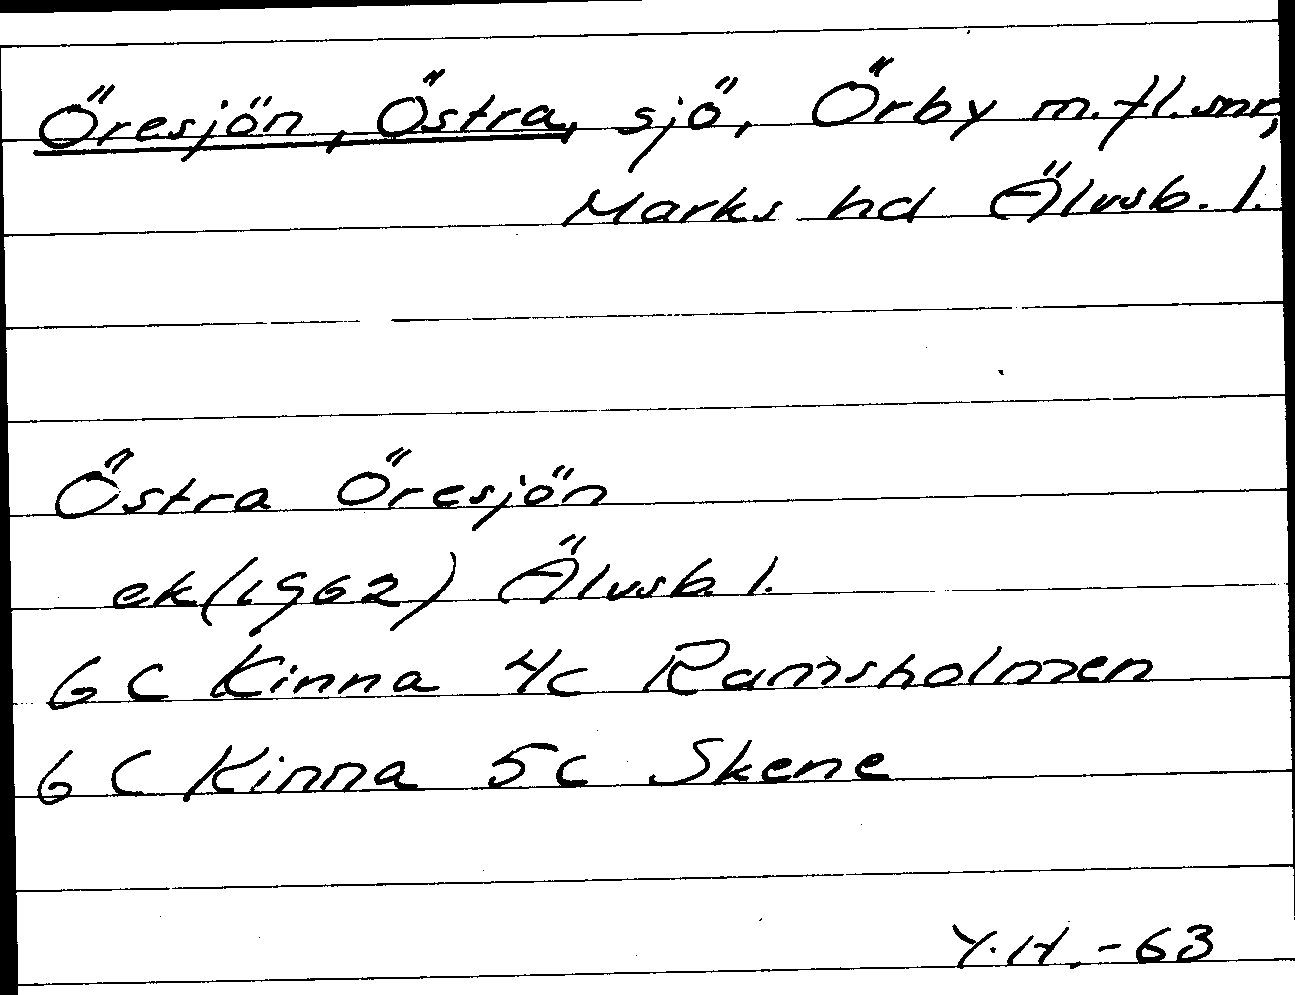 Öresjön, Östra, sjö, Örby m.fl. snr,
Marks hd Älvsb. l.
Östra Öresjön
ek(1962) Älvsb. l.
6 C Kinna 4c Ramsholmen
6 C Kinna 5c Skene
Y.H. -63